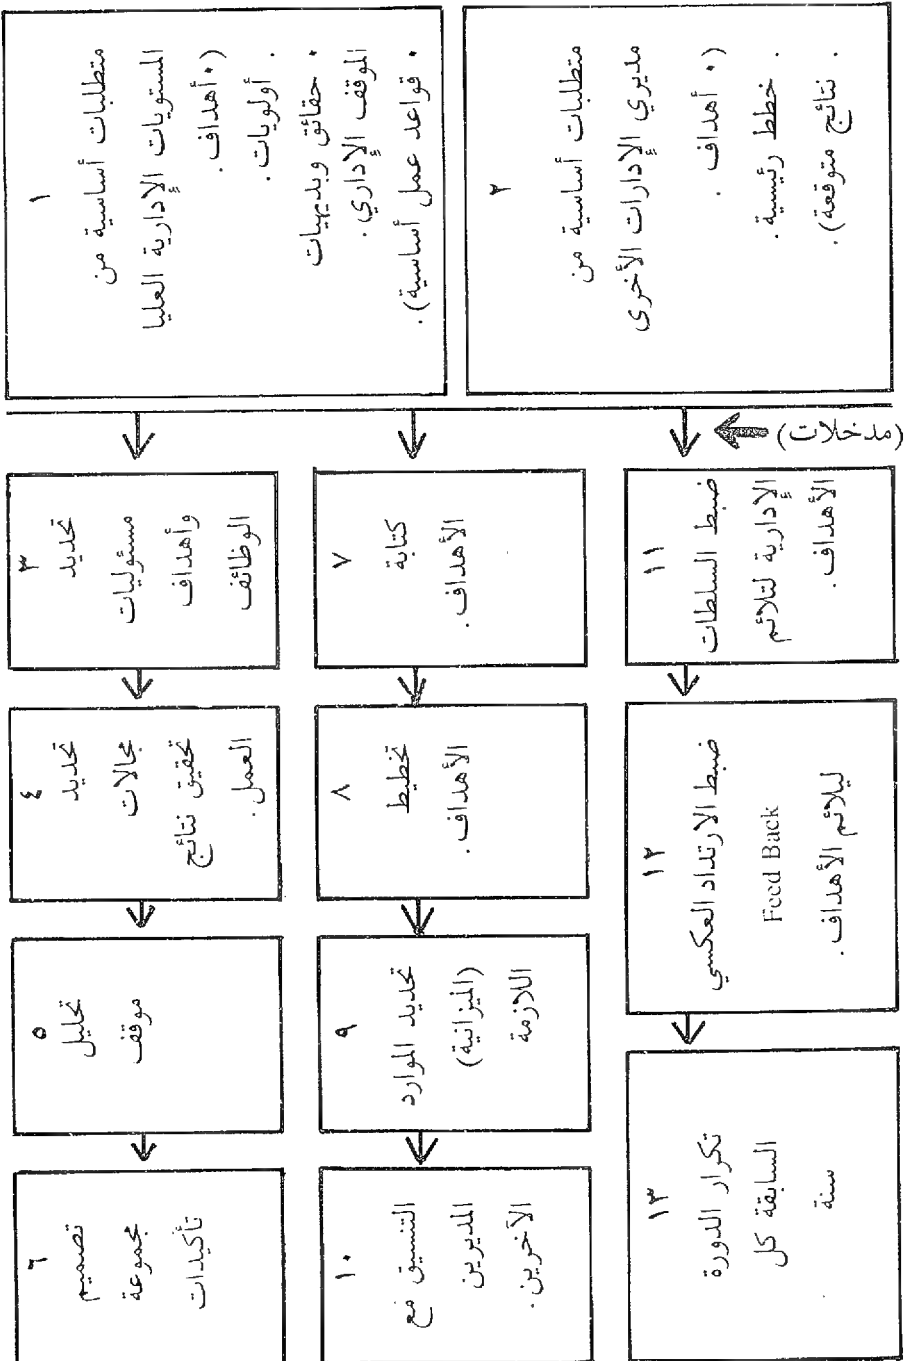 ١
متطلبات أساسية من
المستويات الإدارية العليا
(• أهداف.
. أولويات.
• حقائق وبديهيات
الموقف الإداري.
• قواعد عمل أساسية).
٢
متطلبات أساسية من
مديري الإدارات الأخرى
(• أهداف .
. خطط رئيسية.
. نتائج متوقعة).
(مدخلات)
٣
تحديد
مسئوليات
وأهداف
الوظائف
٤
تحديد
مجالات
تحقيق نتائج
العمل.
٥
تحليل
موقف
٦
تصميم
مجموعة
تأكيدات
٧
كتابة
الأهداف.
٨
تخطيط
الأهداف.
٩
تحديد الموارد
(الميزانية)
اللازمة
١٠
التنسيق مع
المديرين
الآخرين.
١١
ضبط السلطات
الإدارية لتلائم
الأهداف.
١٢
ضبط الارتداد العكسي
Feed Back
ليلائم الأهداف.
١٣
تكرار الدورة
السابقة كل
سنة